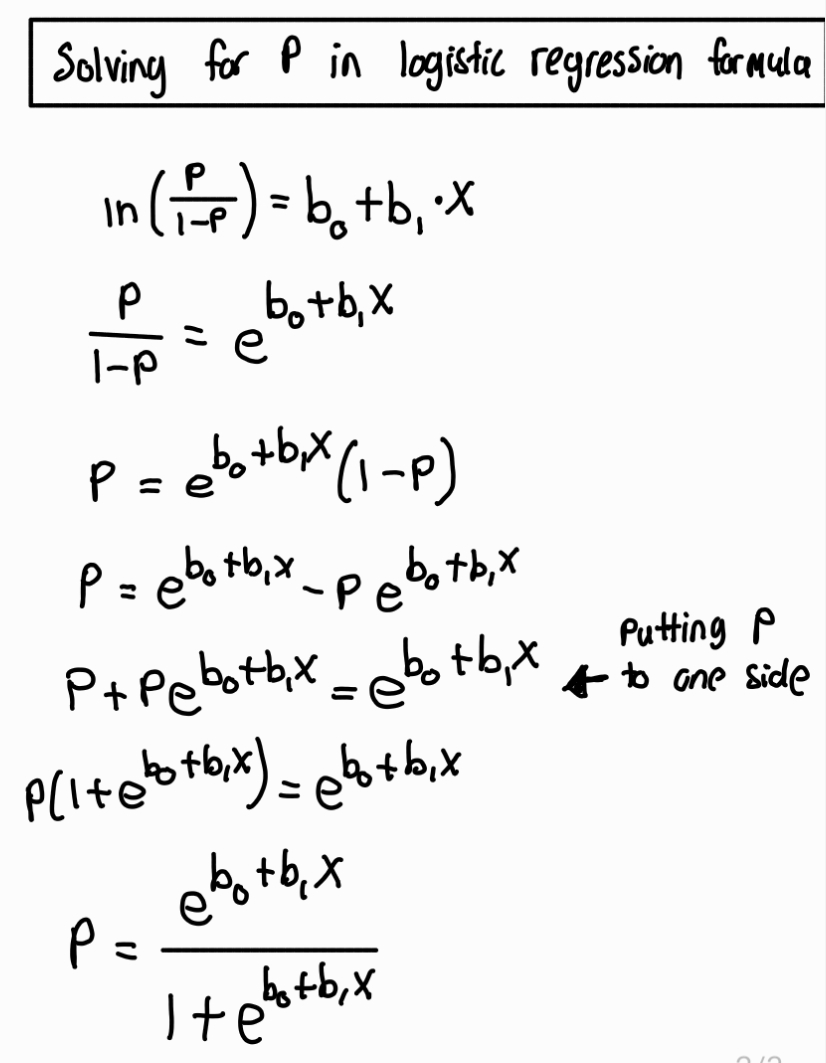 Solving for P in logistic regression formula
ln(P/(1-P)) = b₀+b₁·X
P/(1-P) = e^(b₀+b₁X)
P = e^(b₀+b₁X)(1-P)
P = e^(b₀+b₁X) - Pe^(b₀+b₁X)
P+Pe^(b₀+b₁X) = e^(b₀+b₁X) ← Putting P to one side
P(1+e^(b₀+b₁X)) = e^(b₀+b₁X)
P = e^(b₀+b₁X)/(1+e^(b₀+b₁X))